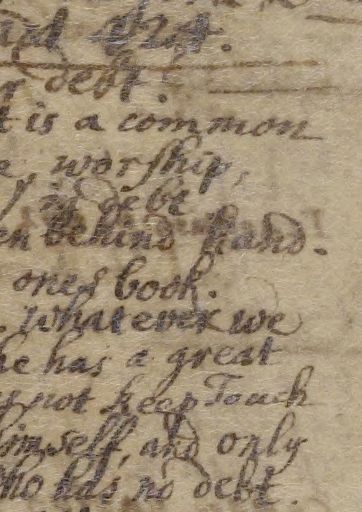 debt.
t is a common
e, worship,
y in debt
en behind hand.
ones book.
. Whatever we
he has a great
not keep Touch
himself, and only
Who has no debt.